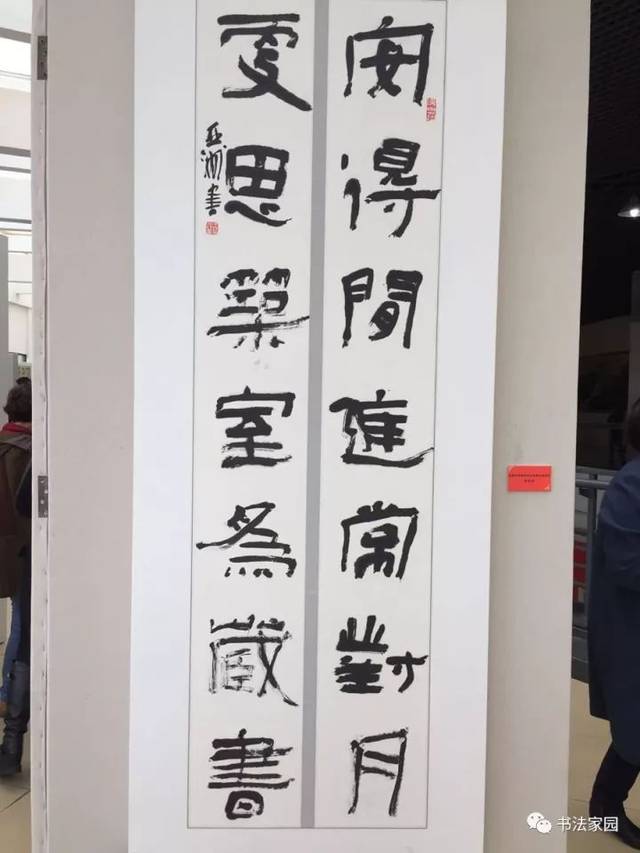 安得閒進常對月
更思築室為藏書
亞洲書
书法家园